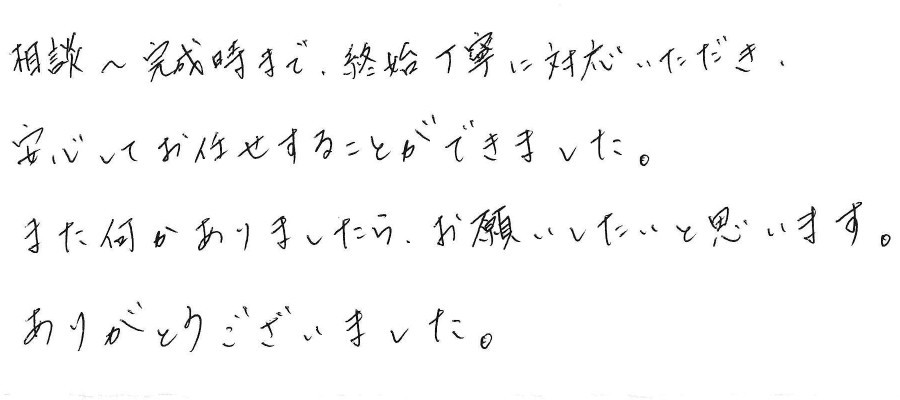 相談～完成時まで、終始丁寧に対応いただき、
安心してお任せすることができました。
また何かありましたら、お願いしたいと思います。
ありがとうございました。